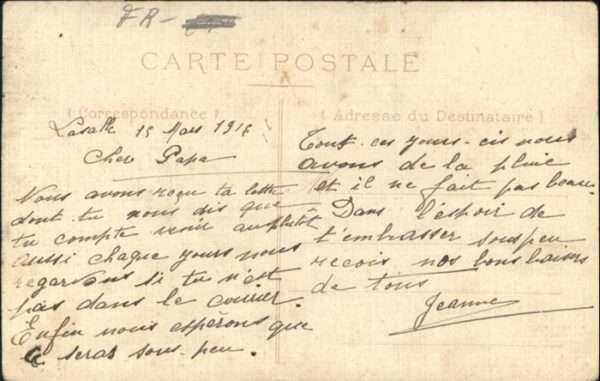 FR-
CARTE POSTALE
(Correspondance)
Lasalle 15 Mars 1916
Cher Papa
Nous avons reçu ta lettre
dont tu nous dis que
tu compte venir au plutôt
aussi chaque yours nous
regardons si tu n'est
pas dans le courier.
Enfin nous espérons que
ce seras sous-peu.
(Adresse du Destinataire)
Tout ces yours-cis nous
avons de la pluie
et il ne fait pas beau.
Dans l'espoir de
t'embrasser sous peu
recois nos bons baisers
de tous
Jeanne